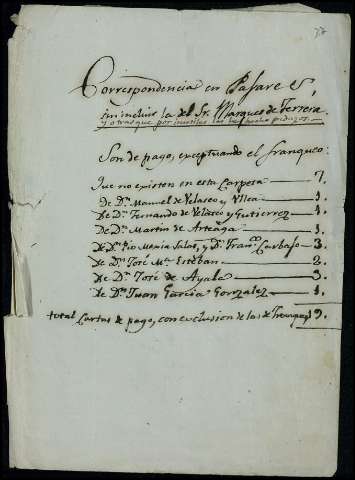 Correspondencia en Pasare
sin incluir la del Sr. Marques de Ferrera
y otras que por inutiles las he hecho pedazos.
Son de pago, exceptuando el franqueo:
Que no existen en esta Carpeta — 7.
de Dn. Manuel de Velasco y Ulloa — 1.
de Dn. Fernando de Velasco y Gutierrez — 1.
de Dn. Martin de Arteaga — 1.
de Dn. Pio Maria Salas, y Dn. Franco. Carbajo — 3.
de Dn. José Ma. Estéban — 2.
de Dn. José de Ayala — 3.
de Dn. Juan Garcia Gonzalez — 1.
total Cartas de pago, con exclusion de las de 19.